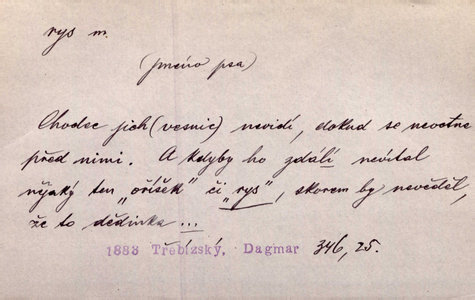 rys m.
(jméno psa)
Chodec jich (vesnic) nevidí, dokud se neoctne
před nimi. A kdyby ho zdálí nevítal
nějaký ten „oříšek" či „rys", skorem by nevěděl,
že to dědinka ...
1883 Třebízský, Dagmar 346, 25.